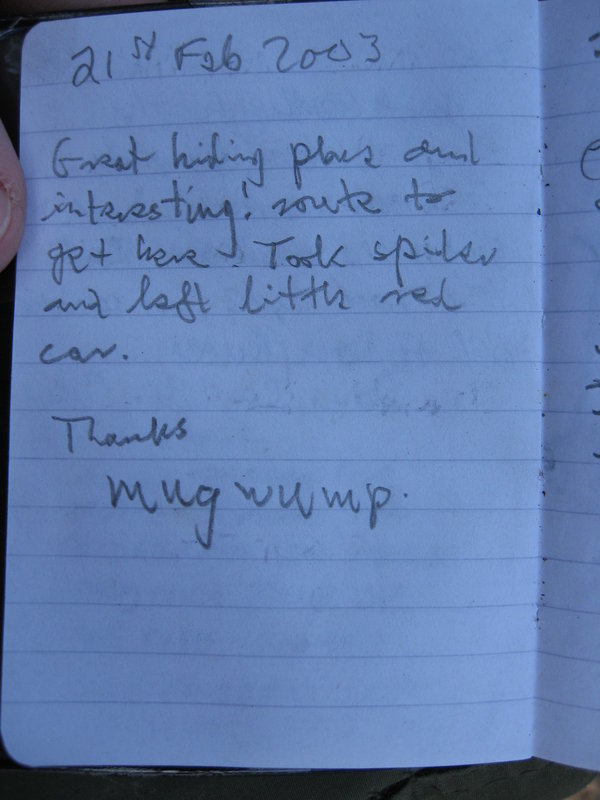 21st Feb 2003
Great hiding place and
interesting! route to
get here. Took spider
and left little red
car.
Thanks
mugwump.